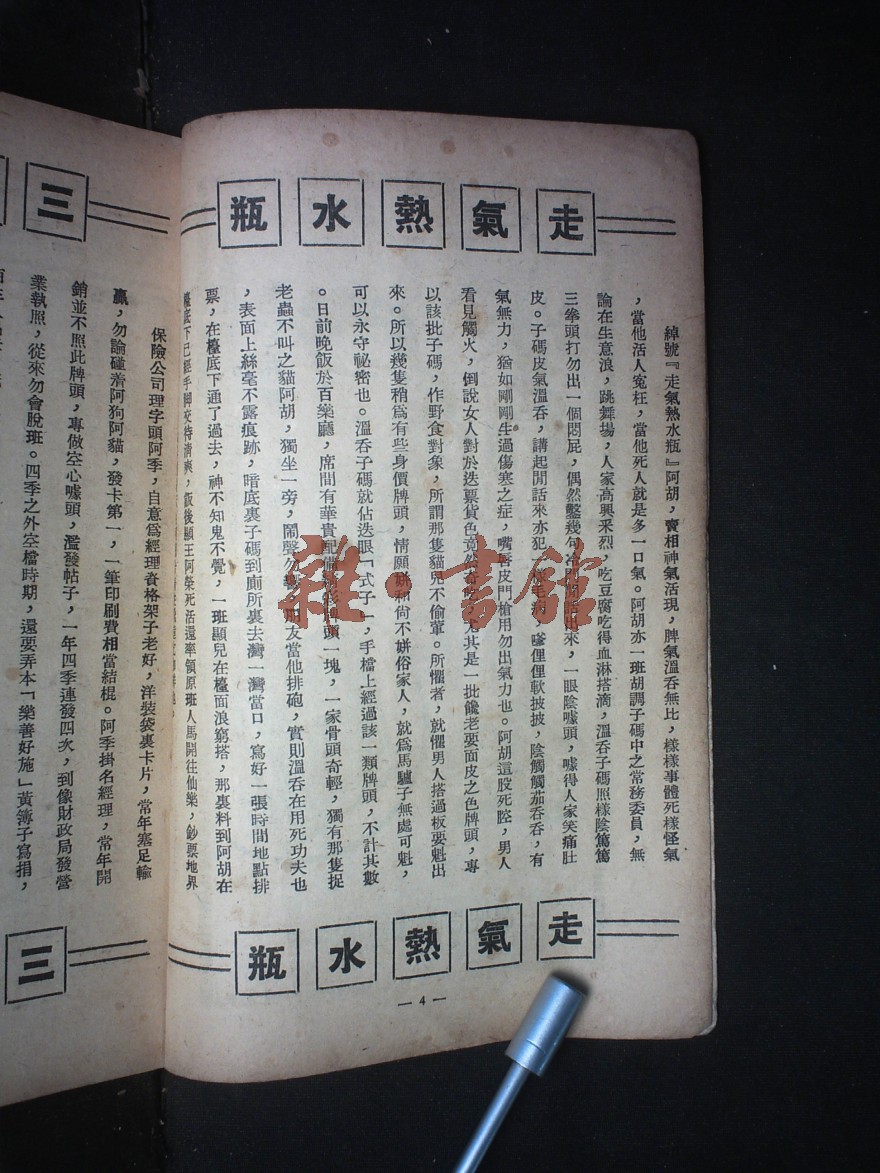 走氣熱水瓶
綽號『走氣熱水瓶』阿胡，賣相神氣活現，脾氣溫吞無比，樣樣事體死樣怪氣
，當他活人寃枉，當他死人就是多一口氣。阿胡亦一班胡調子碼中之常務委員，無
論在生意浪，跳舞場，人家高興釆烈，吃豆腐吃得血淋搭滴，溫吞子碼照樣陰篤篤
三拳頭打勿出一個悶屁，偶然鑿幾句冷門閒話出來，一眼陰噱頭，噱得人家笑痛肚
皮。子碼皮氣溫吞，講起閒話來亦犯一樣毛病，嗲俚俚軟披披，陰觸觸茄吞吞，有
氣無力，猶如剛剛生過傷寒之症，嘴唇皮門槍用勿出氣力也。阿胡這股死腔，男人
看見觸火，倒說女人對於迭票貨色竟然
尤其是一批饞老要面皮之色牌頭，專
以該批子碼，作野食對象，所謂那隻貓兒不偷葷。所懼者，就懼男人搭過板要魁出
來。所以幾隻稍爲有些身價牌頭，情願姘和尙不姘俗家人，就爲馬驢子無處可魁，
可以永守祕密也。溫吞子碼就佔迭眼「式子」，手檔上經過該一類牌頭，不計其數
。日前晚飯於百樂廳，席間有華貴配備
牌頭一塊，一家骨頭奇輕，獨有那隻捉
老蟲不叫之貓阿胡，獨坐一旁，鬧聲勿
朋友當他排砲，實則溫吞在用死功夫也
，表面上絲毫不露痕跡，暗底裏子碼到廁所裏去灣一灣當口，寫好一張時間地點排
票，在檯底下通了過去，神不知鬼不覺，一班顯兒在檯面浪窮搭，那裏料到阿胡在
檯底下已經手脚交待淸爽，飯後顯王阿榮死活還率領原班人馬開往仙樂，鈔票地界
走氣熱水瓶
— 4 —
三
保險公司理字頭阿季，自意爲經理資格架子老好，洋裝袋裏卡片，常年塞足輸
贏，勿論碰着阿狗阿貓，發卡第一，一筆印刷費相當結棍。阿季掛名經理，常年開
銷並不照此牌頭，專做空心噱頭，濫發帖子，一年四季連發四次，到像財政局發營
業執照，從來勿會脫班。四季之外空檔時期，還要弄本「樂善好施」黃簿子寫捐，
三
雜·書館